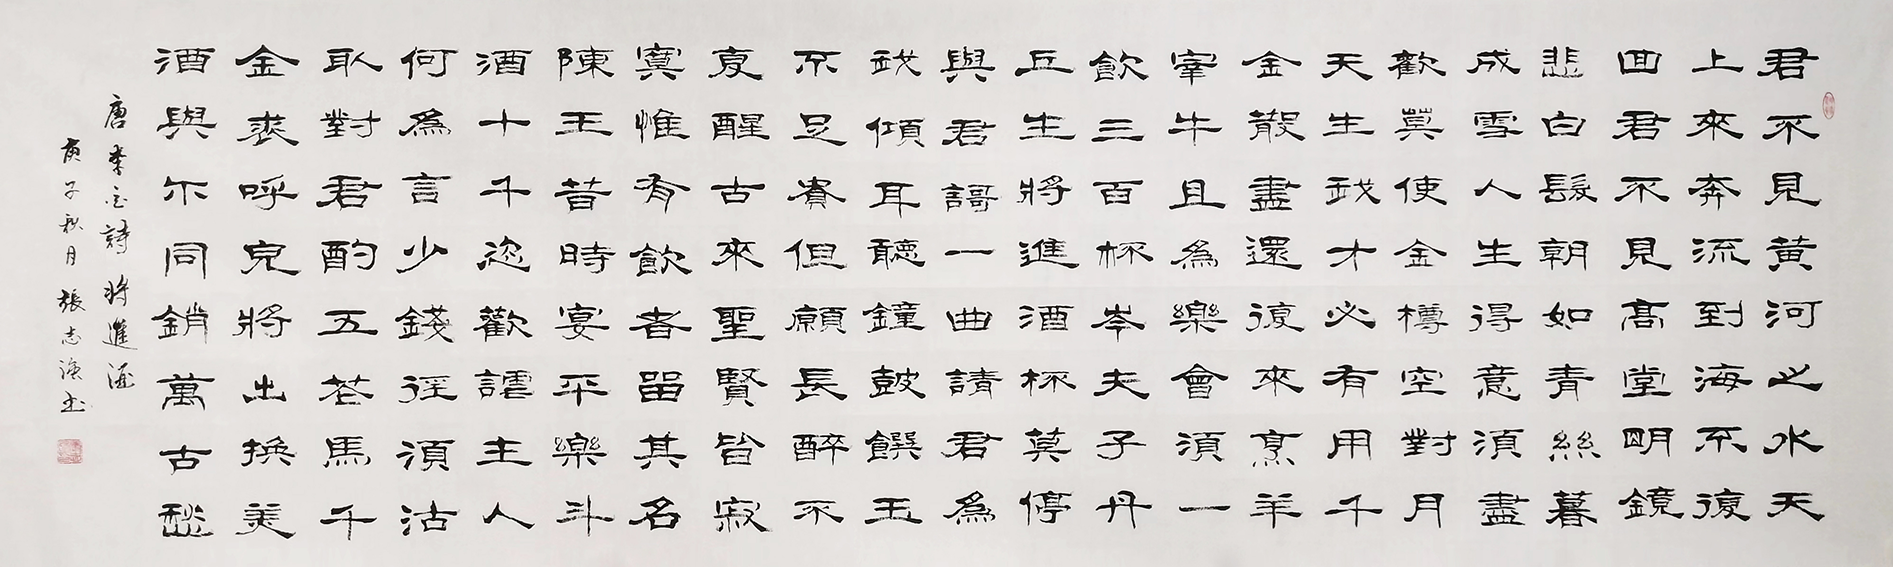 君不見黃河之水天
上來奔流到海不復
回君不見高堂明鏡
悲白髮朝如青絲暮
成雪人生得意須盡
歡莫使金樽空對月
天生我才必有用千
金散盡還復來烹羊
宰牛且為樂會須一
飲三百杯岑夫子丹
丘生將進酒杯莫停
與君謌一曲請君為
我傾耳聽鐘鼓饌玉
不足貴但願長醉不
复醒古來聖賢皆寂
寞惟有飲者留其名
陳王昔時宴平樂斗
酒十千恣歡謔主人
何為言少錢徑須沽
取對君酌五花馬千
金裘呼兒將出換美
酒與尔同銷萬古愁
唐李白詩將進酒
庚子秋月張志漁書